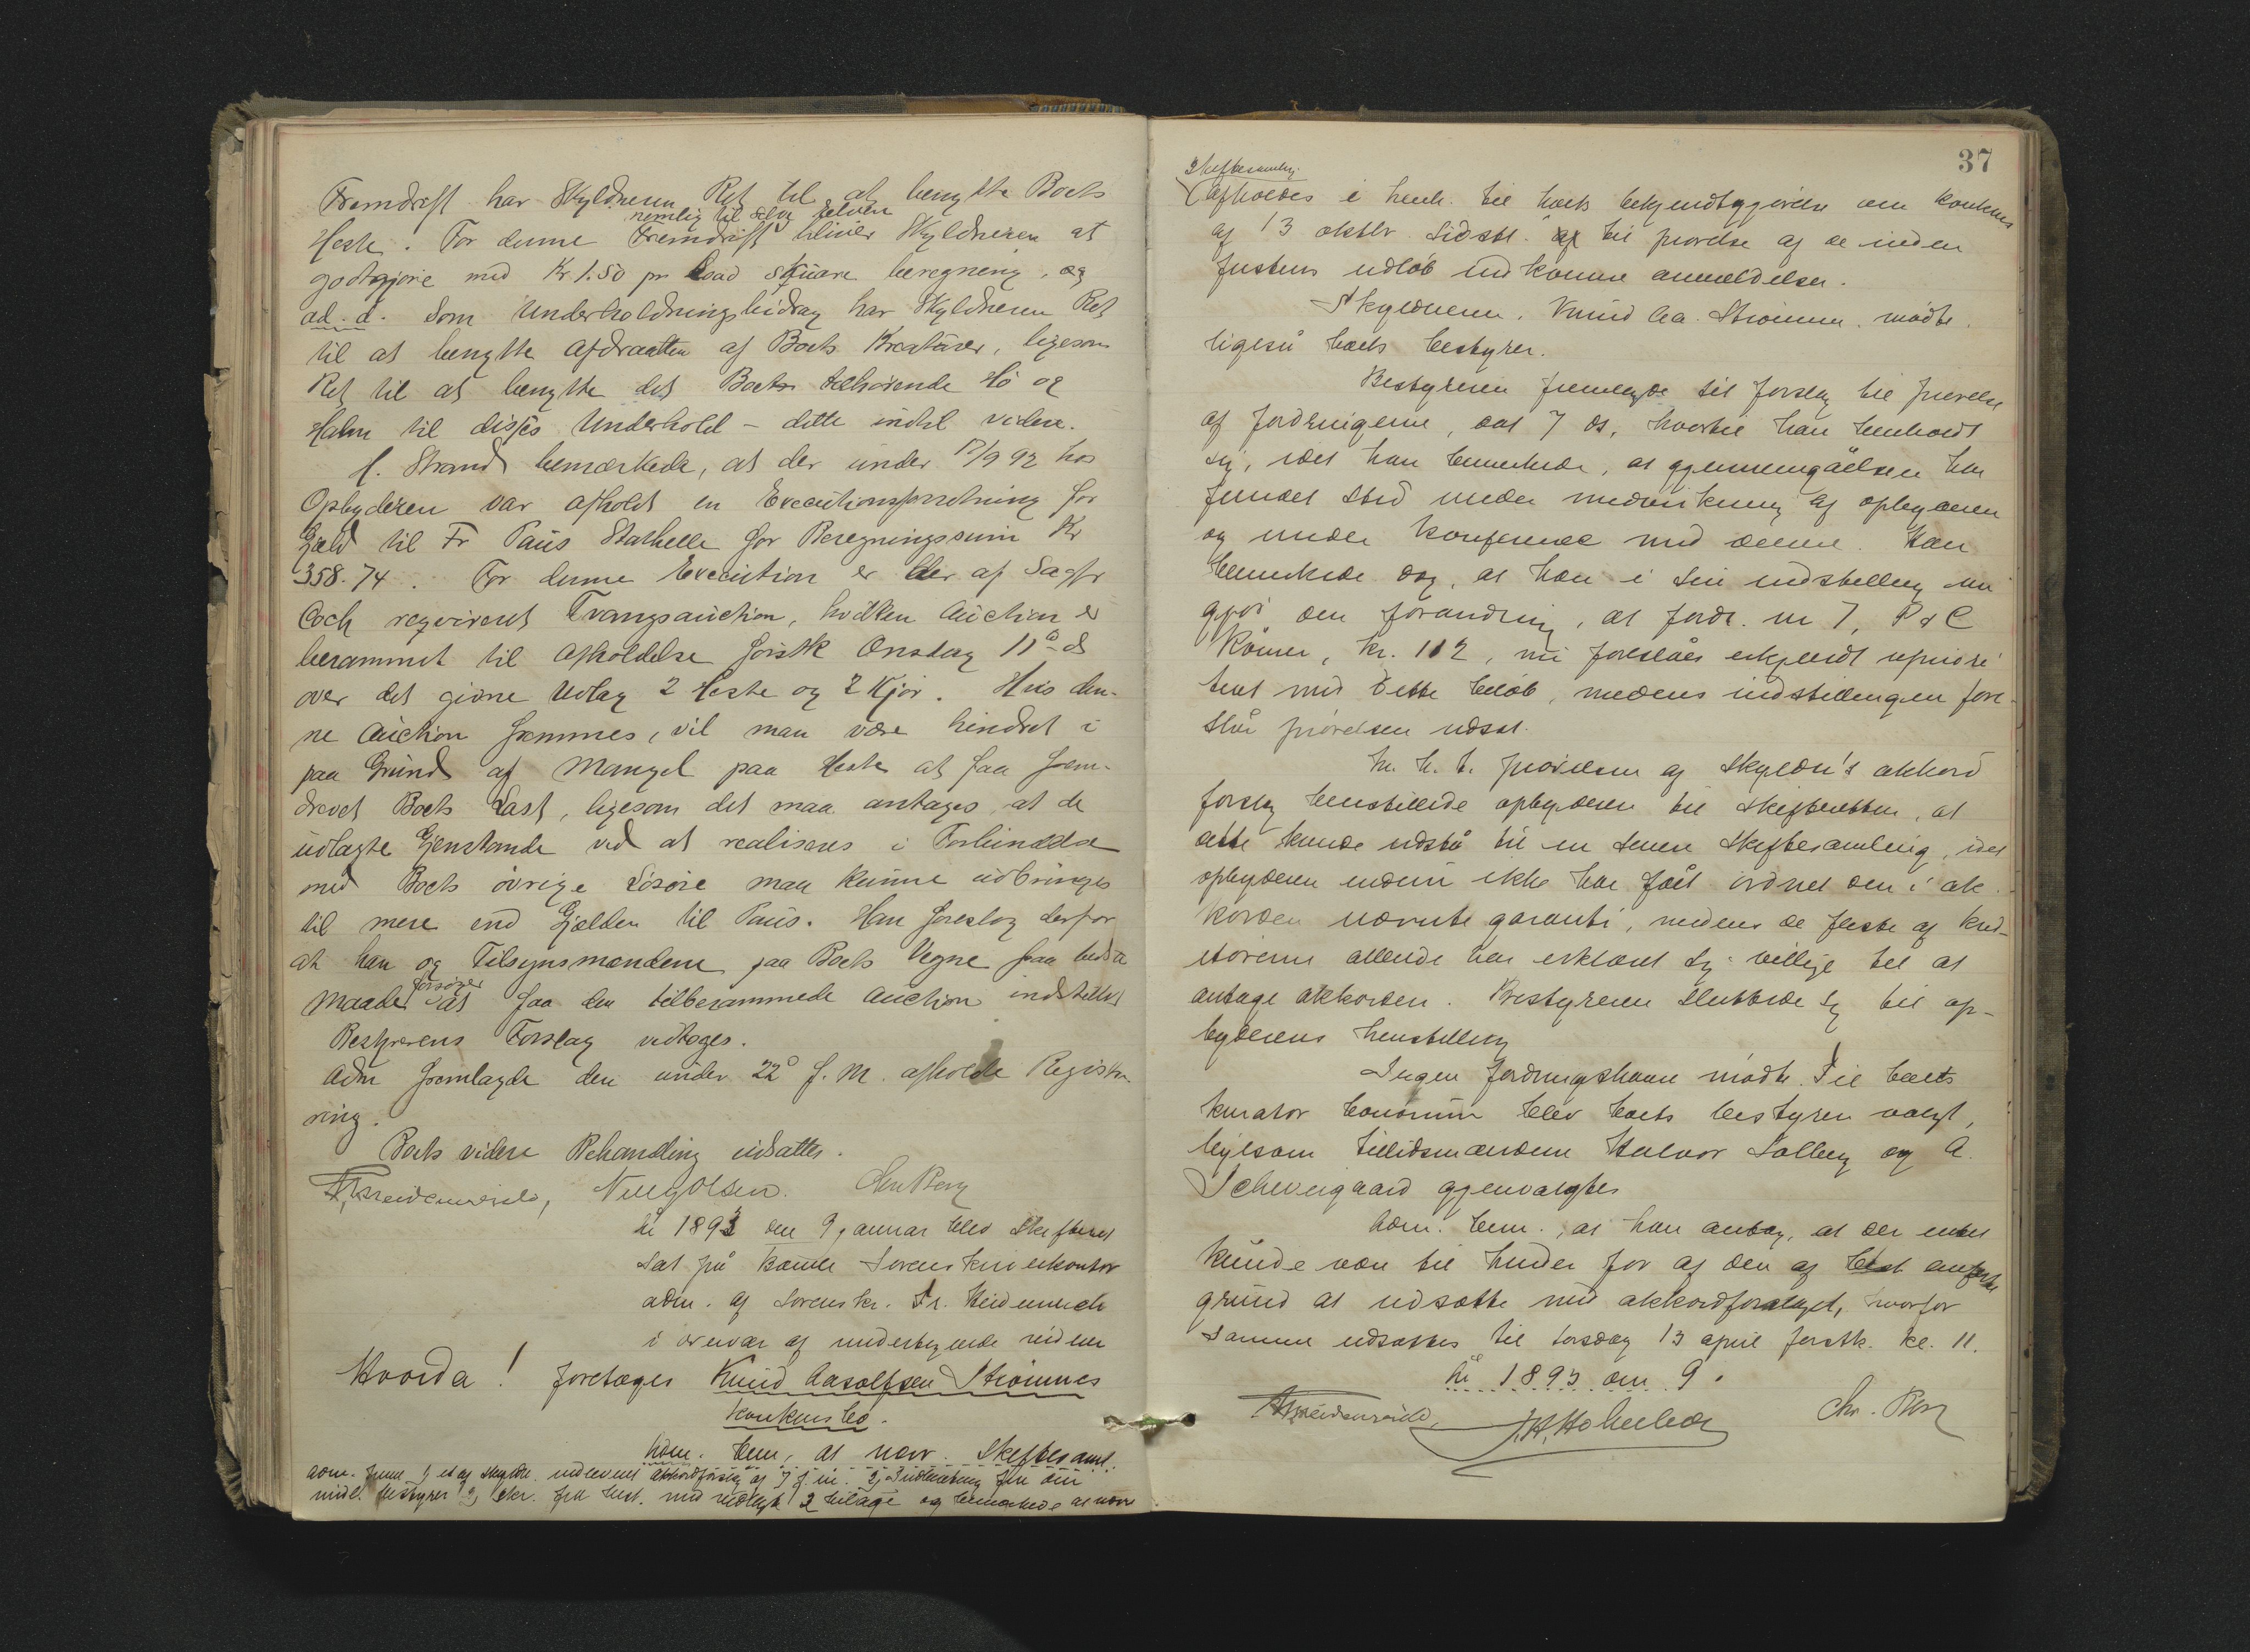 Fremdrift har Skyldneren Ret til at benytte Boets
nemlig til selve Elven
Heste. For denne Fremdrift bliver Skyldneren at
godtgjøre med Kr. 1.50 pr Load square beregning, og
ad. d. Som Underholdningsbidrag har Skyldneren Ret
til at benytte Afdraatten af Boets Kreaturer, ligesom
Ret til at benytte det Boets tilhørende Hø og
Halm til disses Underhold – dette indtil videre.
Strand bemærkede, at der under 17/9 92 hos
Opbyderen var afholdt en Executionsforretning for
Gjeld til Fr Paus Stathelle for Beregningssum Kr
358.74. For denne Execution er der af Sagfr
Coch reqvireret Tvangsauction, hvilken Auction er
berammet til Afholdelse førstk Onsdag 11te ds
over det givne Udlæg 2 Heste og 2 Kjør. Hvis den-
ne Auction fremmes, vil man være hindret i
paa Grund af Mangel paa Heste at faa frem-
drevet Boets Last, ligesom det maa antages at de
udlagte Gjenstande ved at realiseres i Forbindelse
med Boets øvrige Løsøre maa kunne udbringes
til mere end Gjelden til Paus. Han foreslog derfor
at han og Tilsynsmændene paa Boets Vegne paa bedste
forsøger
Maade at faa den tilberammede Auction indstillet
Bestyrerens Forslag vedtoges.
Adm fremlagde den under 22de f. M. afholdte Registre-
ring.
Boets videre Behandling udsattes.
Nils Olsen. Chr Berg
År 1893 den 9 januar blev Skifteret
sat på Bamle Sorenskriverkontor
adm. af Sorenskr. Fr. Heidenreich
i overvær af undertegnede vidner
Hvorda! foretages Knud Aasolfsen Strømmes
konkursbo.
Adm. bem. at nærv. Skiftesaml.
adm. freml. 1) et af skyldn. indleveret akkordforslag af 7 f. m. 2) Indberetning fra den
midl. bestyrer 3) skr. fra best. med vedlagt 2 bilage og bemærkede at nærv
37
Skiftesamling
afholdes i henh. til boets bekjendtgjørelse om konkurs
af 13 oktbr. sidstl. til prøvelse af de inden
fristens udløb indkomne anmeldelser.
Skyldneren, Knud Aa. Strømme. mødte.
ligeså boets bestyrer.
Bestyreren fremlagde sit forslag til prøvelse
af fordringerne, dat 7 ds, hvortil han henholdt
sig, idet han bemerkede, at gjennemgåelsen har
fundet sted under medvirkning af opbyderen
og under konference med denne. Han
bemerkede dog, at han i sin indstilling nu
gjør den forandring, at fordr. nr 7, P & C
Kømer, Kr. 112, nu foreslåes erkjendt upriori-
teret med dette beløb, medens indstillingen fore-
slår prøvelsen udsat.
M. h. t. prøvelsen af Skyldn's akkord
forslag henstillede opbyderen til skifteretten, at
dette kunde udstå til en senere Skiftesamling, idet
opbyderen endnu ikke har fået ordnet den i ak-
korden nævnte garanti, medens de fleste af kred-
itorerne allerede har erklæret sig villige til at
antage akkorden. Bestyreren sluttede sig til op-
byderens henstilling
Ingen fordringshaver mødte. Til boets
kurator bonorum blev boets bestyrer valgt,
ligesom tillidsmændene Halvor Solberg og A.
Schevergaard gjenvalgtes
Adm. bem., at han antog, at der intet
kunde være til hinder for af den af best anførte
grund at udsætte med akkordforslaget, hvorfor
samme udsattes til torsdag 13 april førstk. kl. 11.
År 1893 den 9.
Chr. Berg